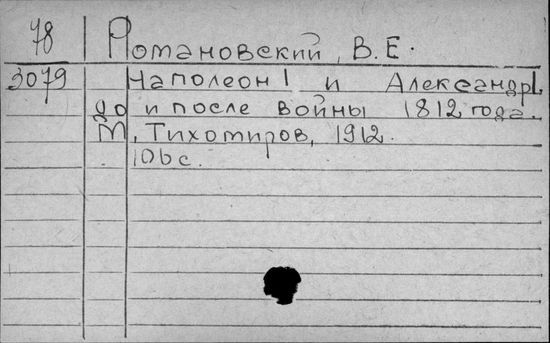 78 Романовский, В.Е.
3079 Наполеон I и Александр I
до и после войны 1812 года.
М, Тихомиров, 1912.
106с.